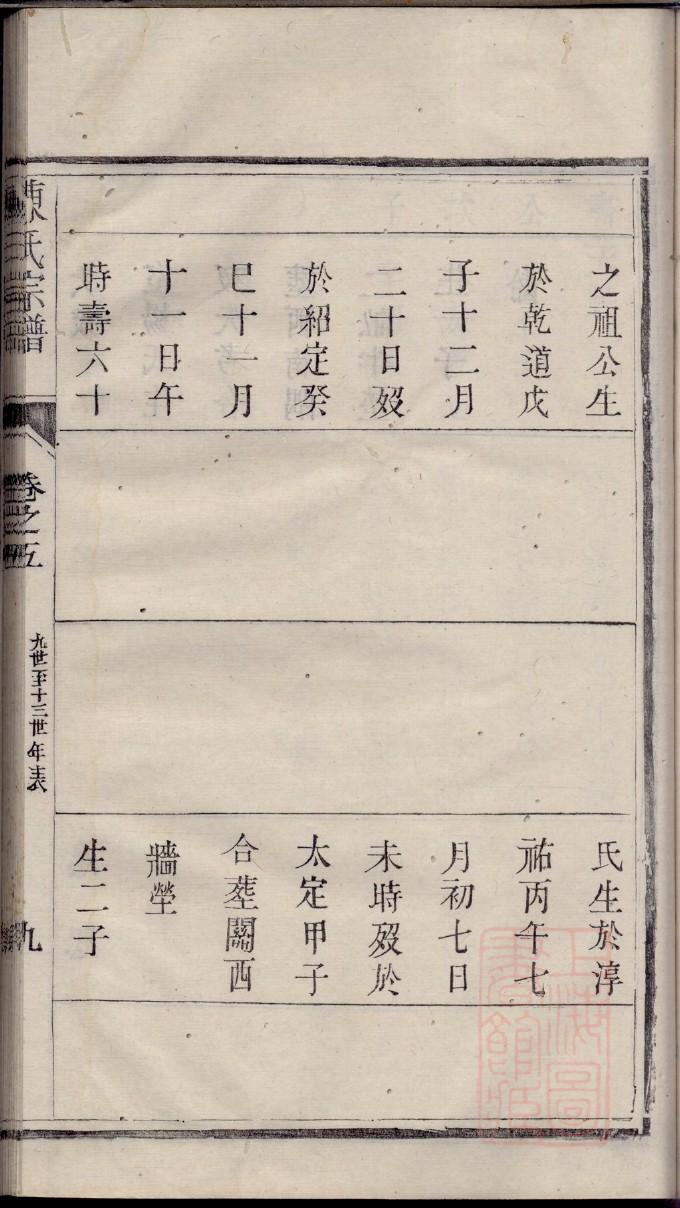 之祖公生
於乾道戊
子十二月
二十日歿
於紹定癸
巳十一月
十一日午
時壽六十
氏生於淳
祐丙午七
月初七日
未時歿於
太定甲子
合塟關西
牆塋
生二子
陳氏宗譜
卷之五
九世至十三世年表
九
上海圖書館藏